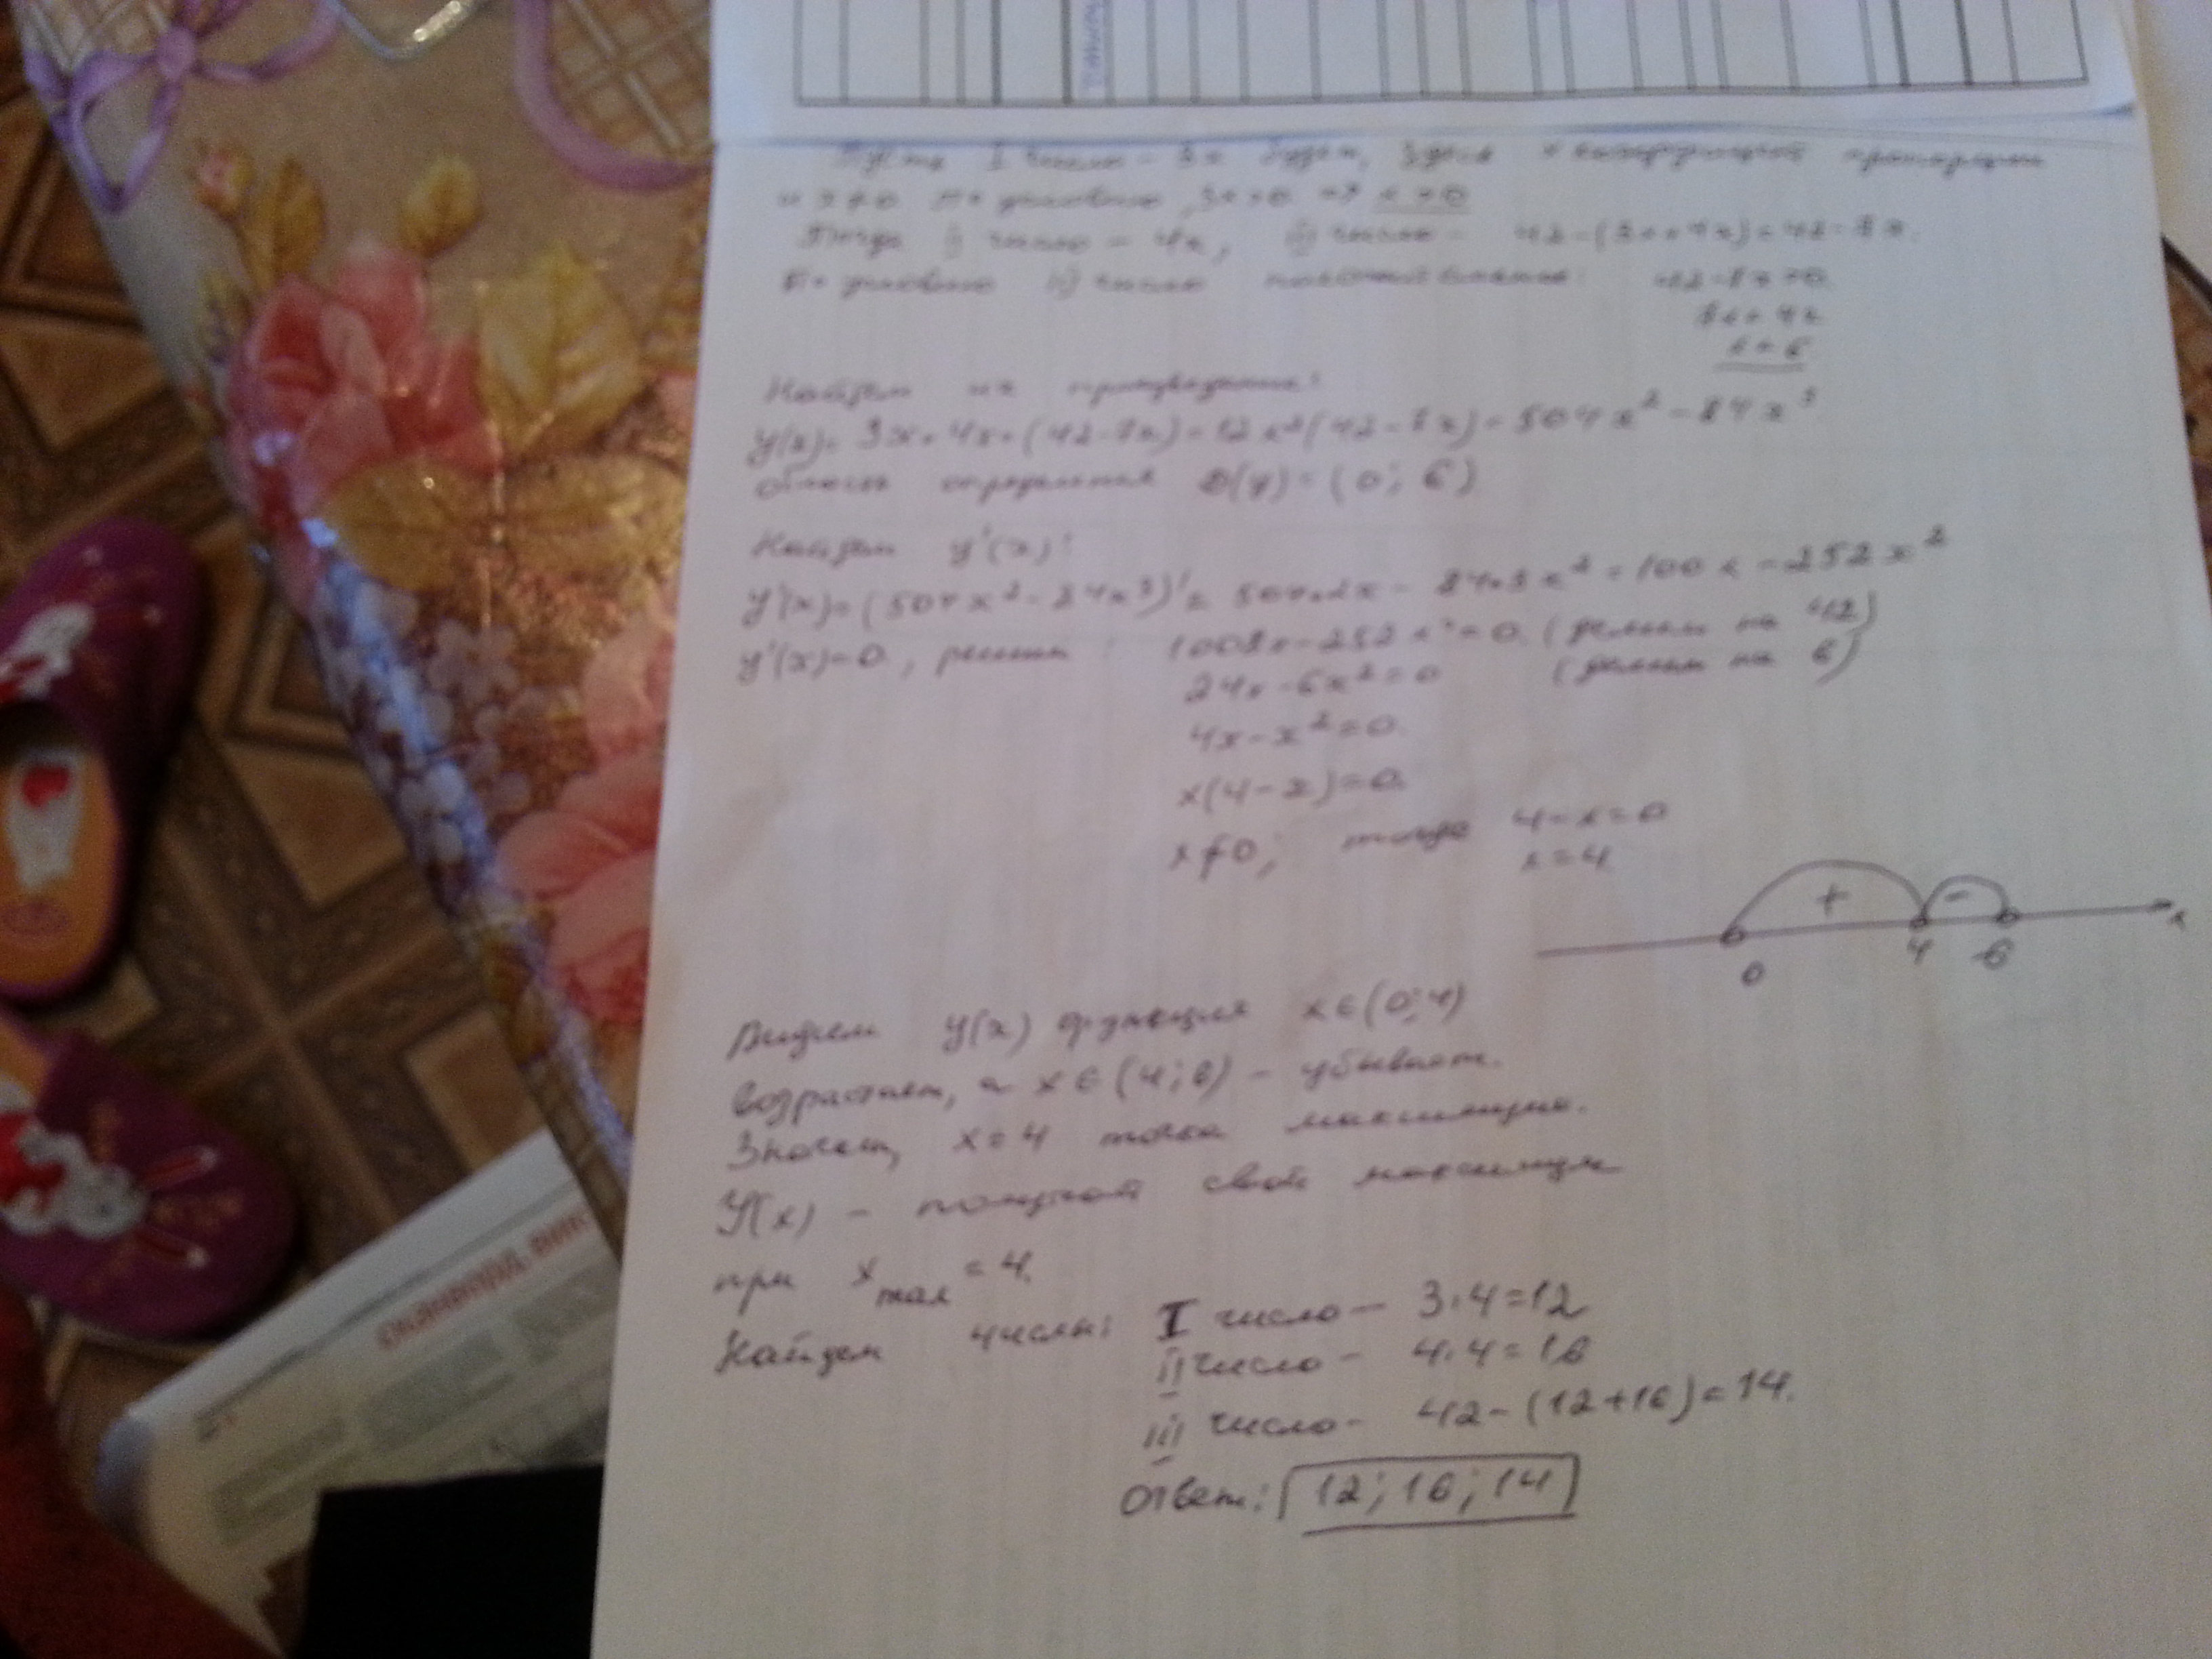 Пусть I число - 3x будет, здесь x коэффициент пропорции
и x≠0 По условию 3x>0 => x>0
Тогда II число - 4x, III число - 42-(3x+4x)=42-7x.
По условию III число положительное: 42-7x>0
7x<42
x<6
Найдем их произведение:
y(x)= 3x·4x·(42-7x)=12x²(42-7x)=504x²-84x³
область определения D(y)=(0; 6)
Найдем y'(x):
y'(x)=(504x²-84x³)'= 504·2x - 84·3x²=100x-252x²
y'(x)=0, решим: 1008x-252x²=0. (делим на 42)
24x-6x²=0 (делим на 6)
4x-x²=0.
x(4-x)=0.
x≠0; тогда 4-x=0
x=4
+ -
0 4 6 x
Видим y(x) функция x∈(0;4)
возрастает, а x∈(4;6) - убывает.
Значит, x=4 точка максимума.
y(x) - получает свой максимум
при x max = 4.
Найдем числа: I число - 3·4=12
II число - 4·4=16
III число - 42-(12+16)=14.
Ответ: 12; 16; 14